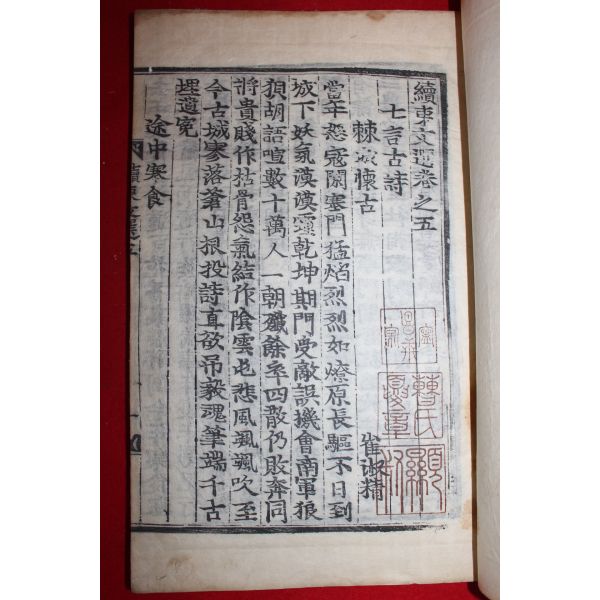 續東文選卷之五
七言古詩
棘城懷古
崔淑精
當年怨寇闌塞門猛焰烈烈如燎原長驅不日到
城下妖氛漠漠彌乾坤期門受敵誤機會南軍狼
狽胡語喧數十萬人一朝殲餘卒四散仍敗奔同
將貴賤作枯骨怨氣結作陰雲屯悲風颯颯吹至
今古城寥落山根投詩直欲吊毅魂筆端千古
埋遺寃
途中寒食
續東文選五
曹氏
顯